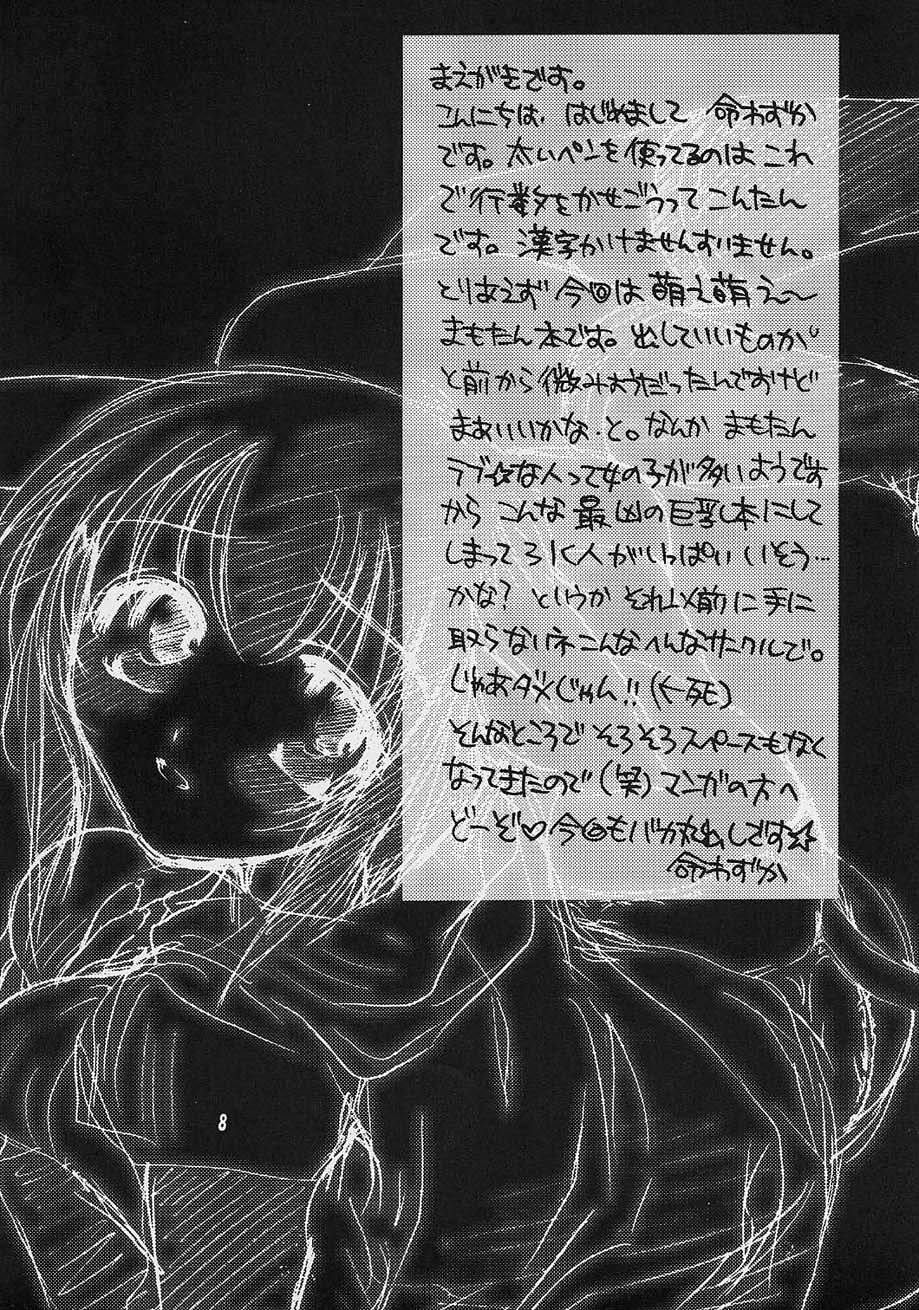 まえがきです。
こんにちは、はじめまして 命わずか
です。太いペンを使ってるのは これ
で行数をかせごうって こんたん
です。漢字かけませんすいません。
とりあえず 今回は 萌え萌え〜
まもたん本です。出していいものか
と前から微みょうだったんですけど
まぁいいかな、と。なんか まもたん
ラブ☆な人って女の子が多いようです
から こんな 最凶の巨乳本にして
しまって ひく人がいっぱいいそう…
かな? というか それ以前に手に
取らないネこんなへんなサークルで。
じゃあダメじゃん!!(←死)
そんなところで そろそろスペースもなく
なってきたので(笑)マンガの方へ
どーぞ♡今回もバカ丸出しです☆
命わずか
8